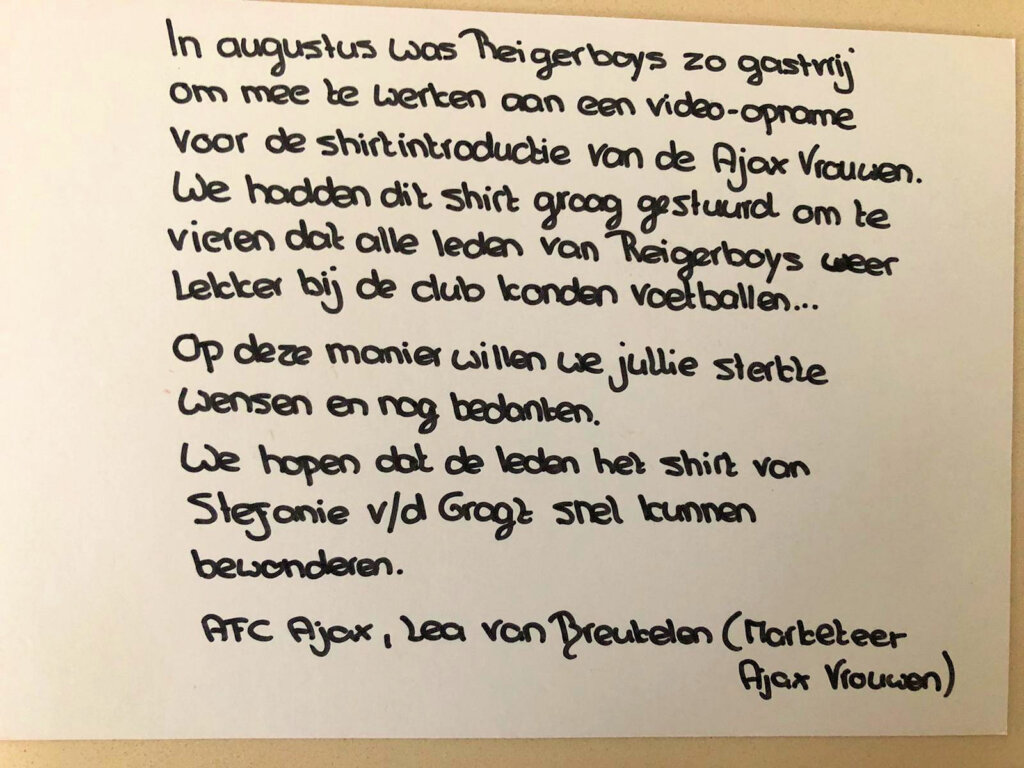 In augustus was Reigerboys zo gastvrij
om mee te werken aan een video-opname
voor de shirtintroductie van de Ajax Vrouwen.
We hadden dit shirt graag gestuurd om te
vieren dat alle leden van Reigerboys weer
lekker bij de club konden voetballen...
Op deze manier willen we jullie sterkte
wensen en nog bedanken.
We hopen dat de leden het shirt van
Stefanie v/d Gragt snel kunnen
bewonderen.
AFC Ajax, Lea van Breukelen (Marketeer
Ajax Vrouwen)